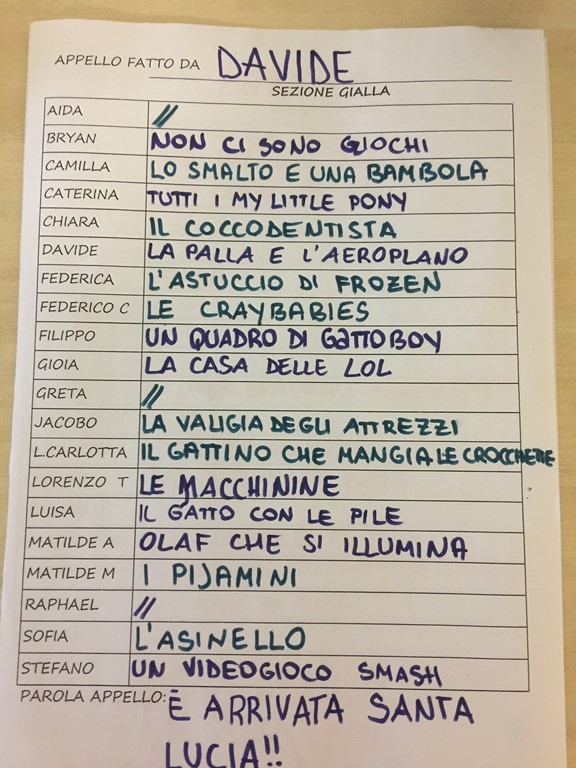 APPELLO FATTO DA DAVIDE
SEZIONE GIALLA
AIDA //
BRYAN NON CI SONO GIOCHI
CAMILLA LO SMALTO E UNA BAMBOLA
CATERINA TUTTI I MY LITTLE PONY
CHIARA IL COCCODENTISTA
DAVIDE LA PALLA E L'AEROPLANO
FEDERICA L'ASTUCCIO DI FROZEN
FEDERICO C LE CRAYBABIES
FILIPPO UN QUADRO DI GATTOBOY
GIOIA LA CASA DELLE LOL
GRETA //
JACOBO LA VALIGIA DEGLI ATTREZZI
L.CARLOTTA IL GATTINO CHE MANGIA LE CROCCHETTE
LORENZO T LE MACCHININE
LUISA IL GATTO CON LE PILE
MATILDE A OLAF CHE SI ILLUMINA
MATILDE M I PIJAMINI
RAPHAEL //
SOFIA L'ASINELLO
STEFANO UN VIDEOGIOCO SMASH
PAROLA APPELLO: È ARRIVATA SANTA
LUCIA!!